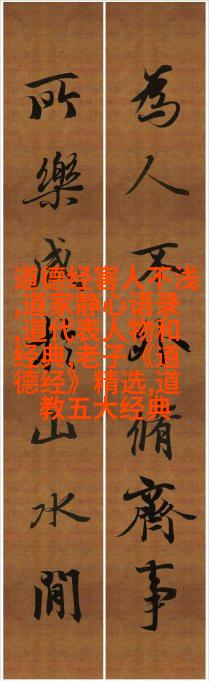 為人不脩齊事
所樂山水閒
道德经害人不浅
,道家静心语录
,道代表人物和
经典,老子《道
德经》精选,道
教五大经典